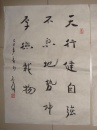 天行健自强
不息地势坤
厚德载物